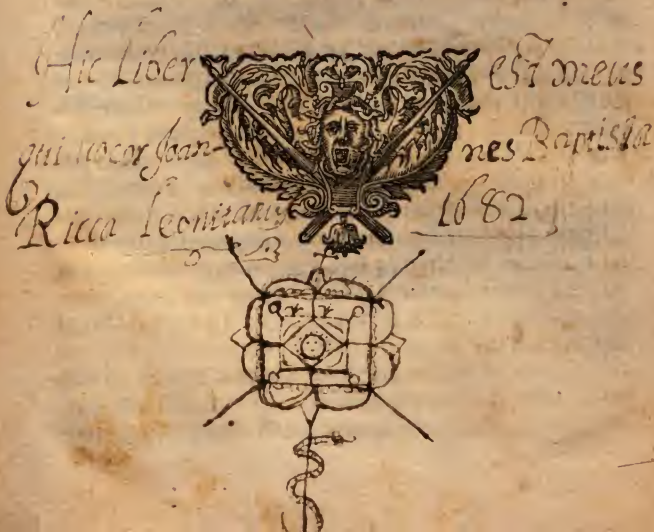 Hic Liber est meus
qui uocor Joan- nes Baptista
Ricca 1682